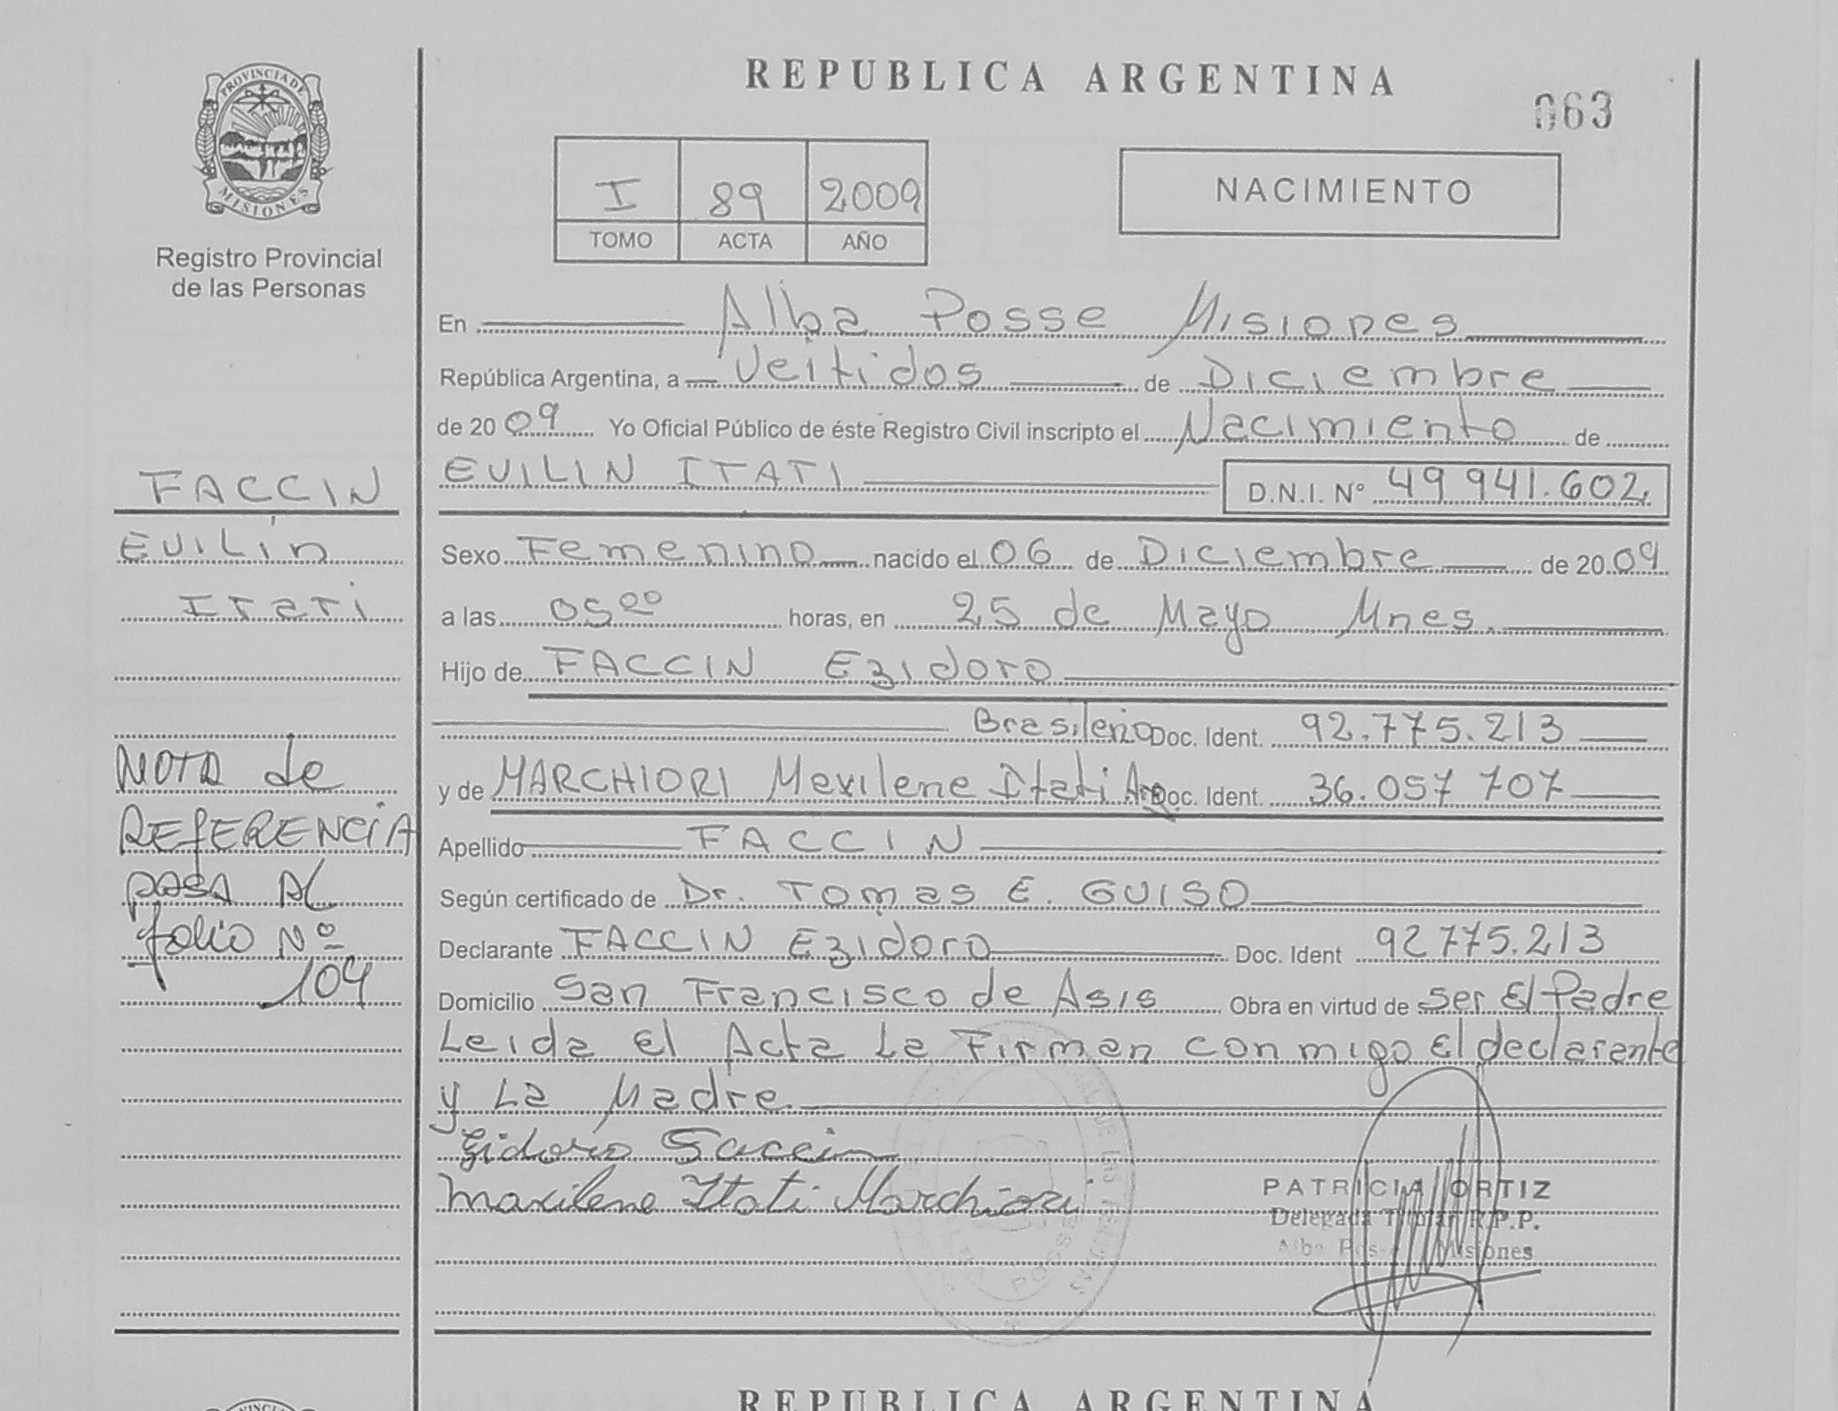 REPUBLICA ARGENTINA
063
PROVINCIA DE
MISIONES
Registro Provincial
de las Personas
I 89 2009
TOMO ACTA AÑO
NACIMIENTO
En Alba Posse Misiones
República Argentina, a Veitidos de Diciembre
de 2009 Yo Oficial Público de éste Registro Civil inscripto el Nacimiento de
EVILIN ITATI D.N.I. Nº 49 941.602
Sexo Femenino nacido el 06 de Diciembre de 2009
a las 05⁰⁰ horas, en 25 de Mayo Mnes.
Hijo de FACCIN Ezidoro
Brasileño Doc. Ident. 92.775.213
y de MARCHIORI Mexilene Itati Arg. Doc. Ident. 36.057 707
Apellido FACCIN
Según certificado de Dr. Tomas E. GUISO
Declarante FACCIN Ezidoro Doc. Ident 92 775.213
Domicilio San Francisco de Asis Obra en virtud de Ser El Padre
Leida El Acta La Firman con migo El declarante
y La Madre
Ezidoro Faccin
Marilene Itati Marchiori
PATRICIA ORTIZ
Delegada Titular R.P.P.
Alba Posse Misiones
FACCIN
EVILIN
Itati
NOTA de
REFERENCIA
PASA AL
folio Nº
104
REPUBLICA ARGENTINA